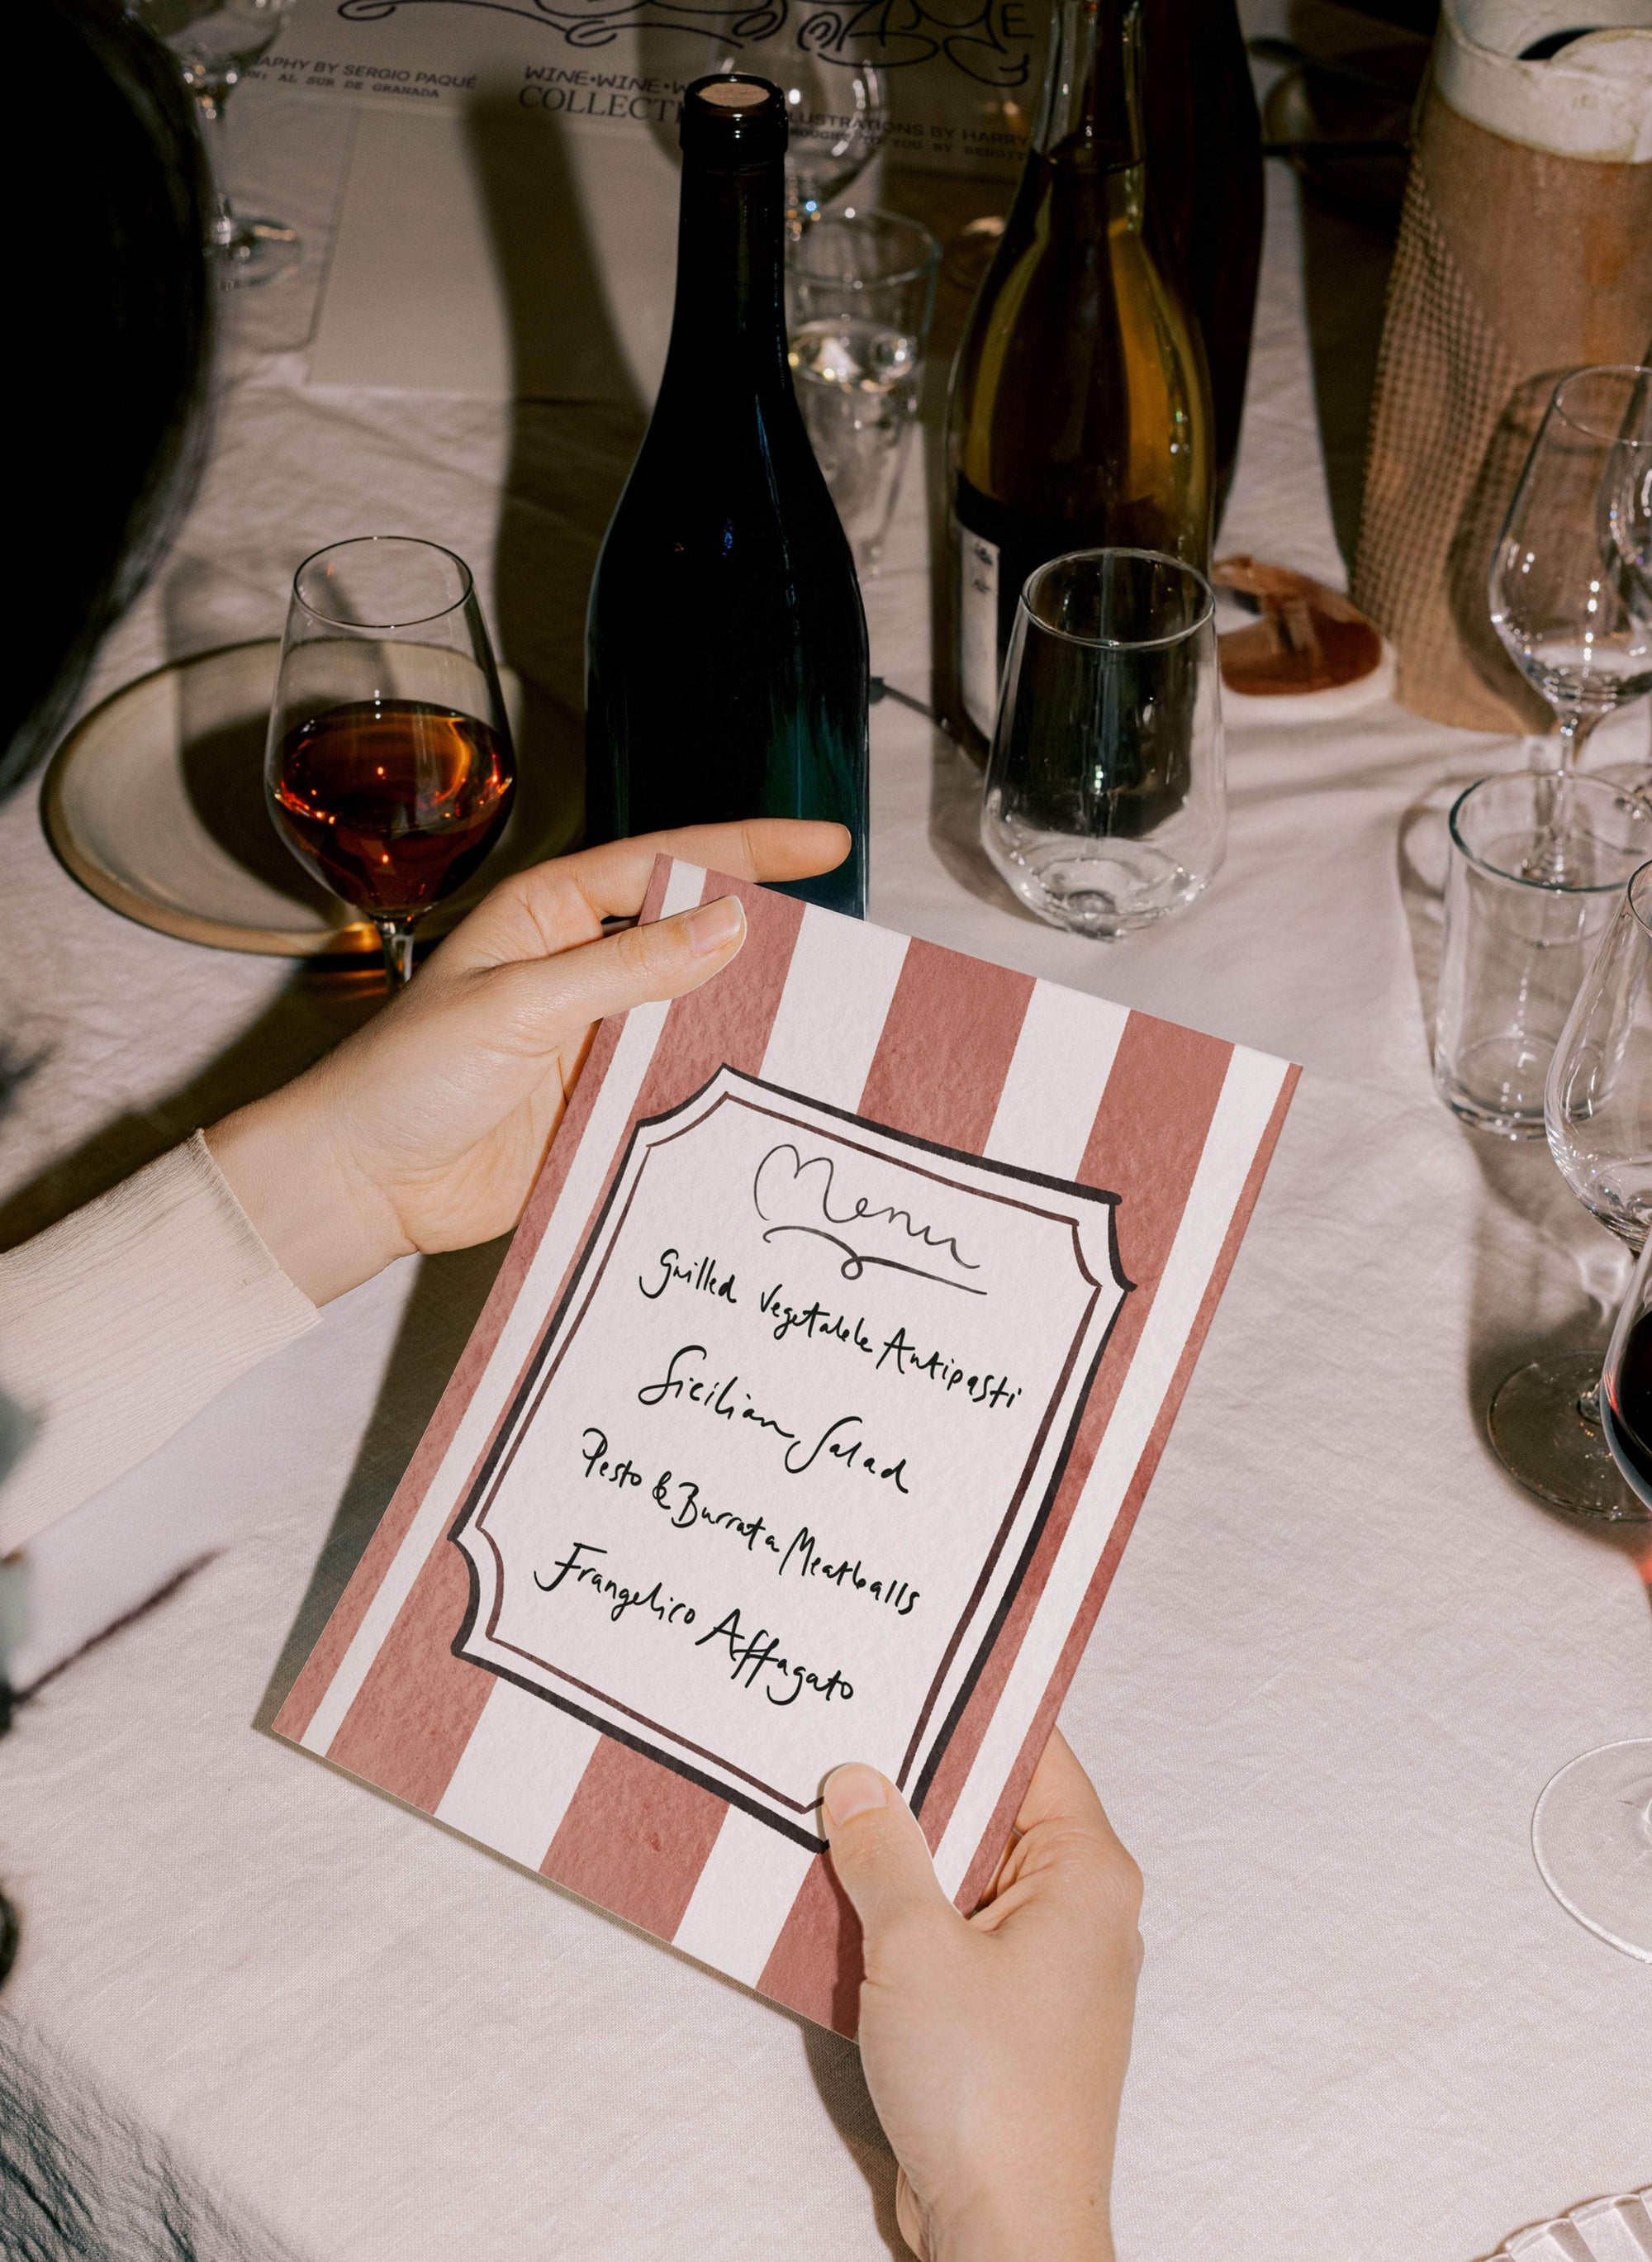 APHY BY SERGIO PAQUÉ
ON: AL SUR DE GRANADA
WINE•WINE•W
COLLECTI
LUSTRATIONS BY HARRY
BROUGHT TO YOU BY BENDITO
Menu
Grilled Vegetable Antipasti
Sicilian Salad
Pesto & Burrata Meatballs
Frangelico Affagato